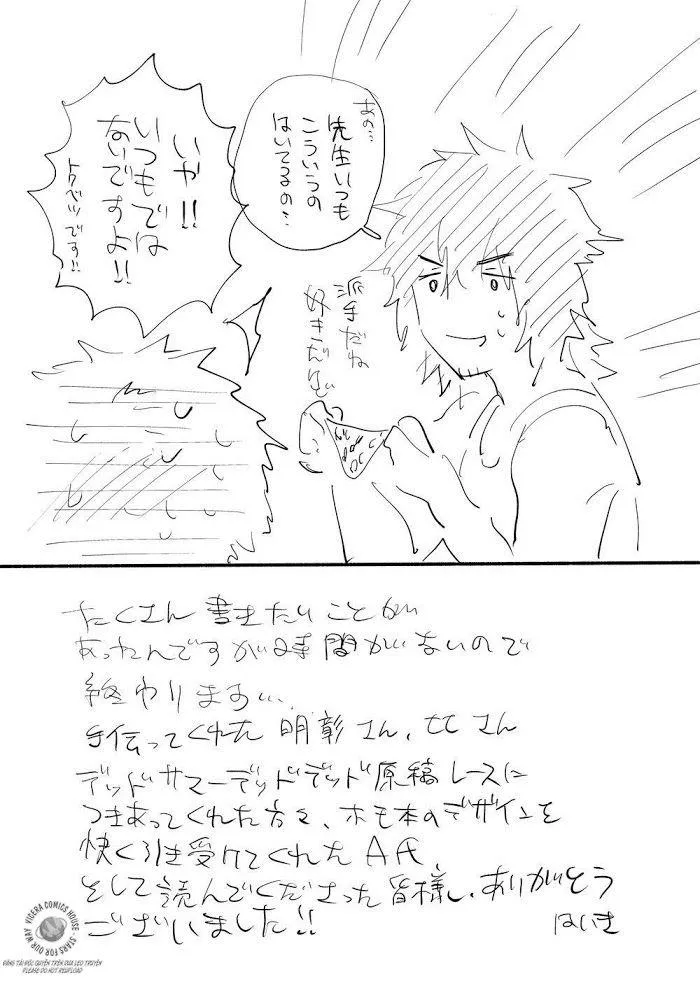 あの…
先生いつも
こういうの
はいてるの…
いや!!
いつもでは
ないですよ!!
トクベツです!!
派手だね
好きだぜ
たくさん書きたいことが
あったんですが時間がないので
終わります…
手伝ってくれた明彰さん、ヒヒさん
デッドサマーデッドデッド原稿レースに
つきあってくれた方々、ホモ本のデザインを
快く引き受けてくれたA氏、
そして読んでくださった皆様、ありがとう
ございました!!
はいき
VICERA COMICS HOUSE - STARS FOR OUR WAY
ĐĂNG TẢI ĐỘC QUYỀN TRÊN DUA LEO TRUYEN
PLEASE DO NOT REUPLOAD